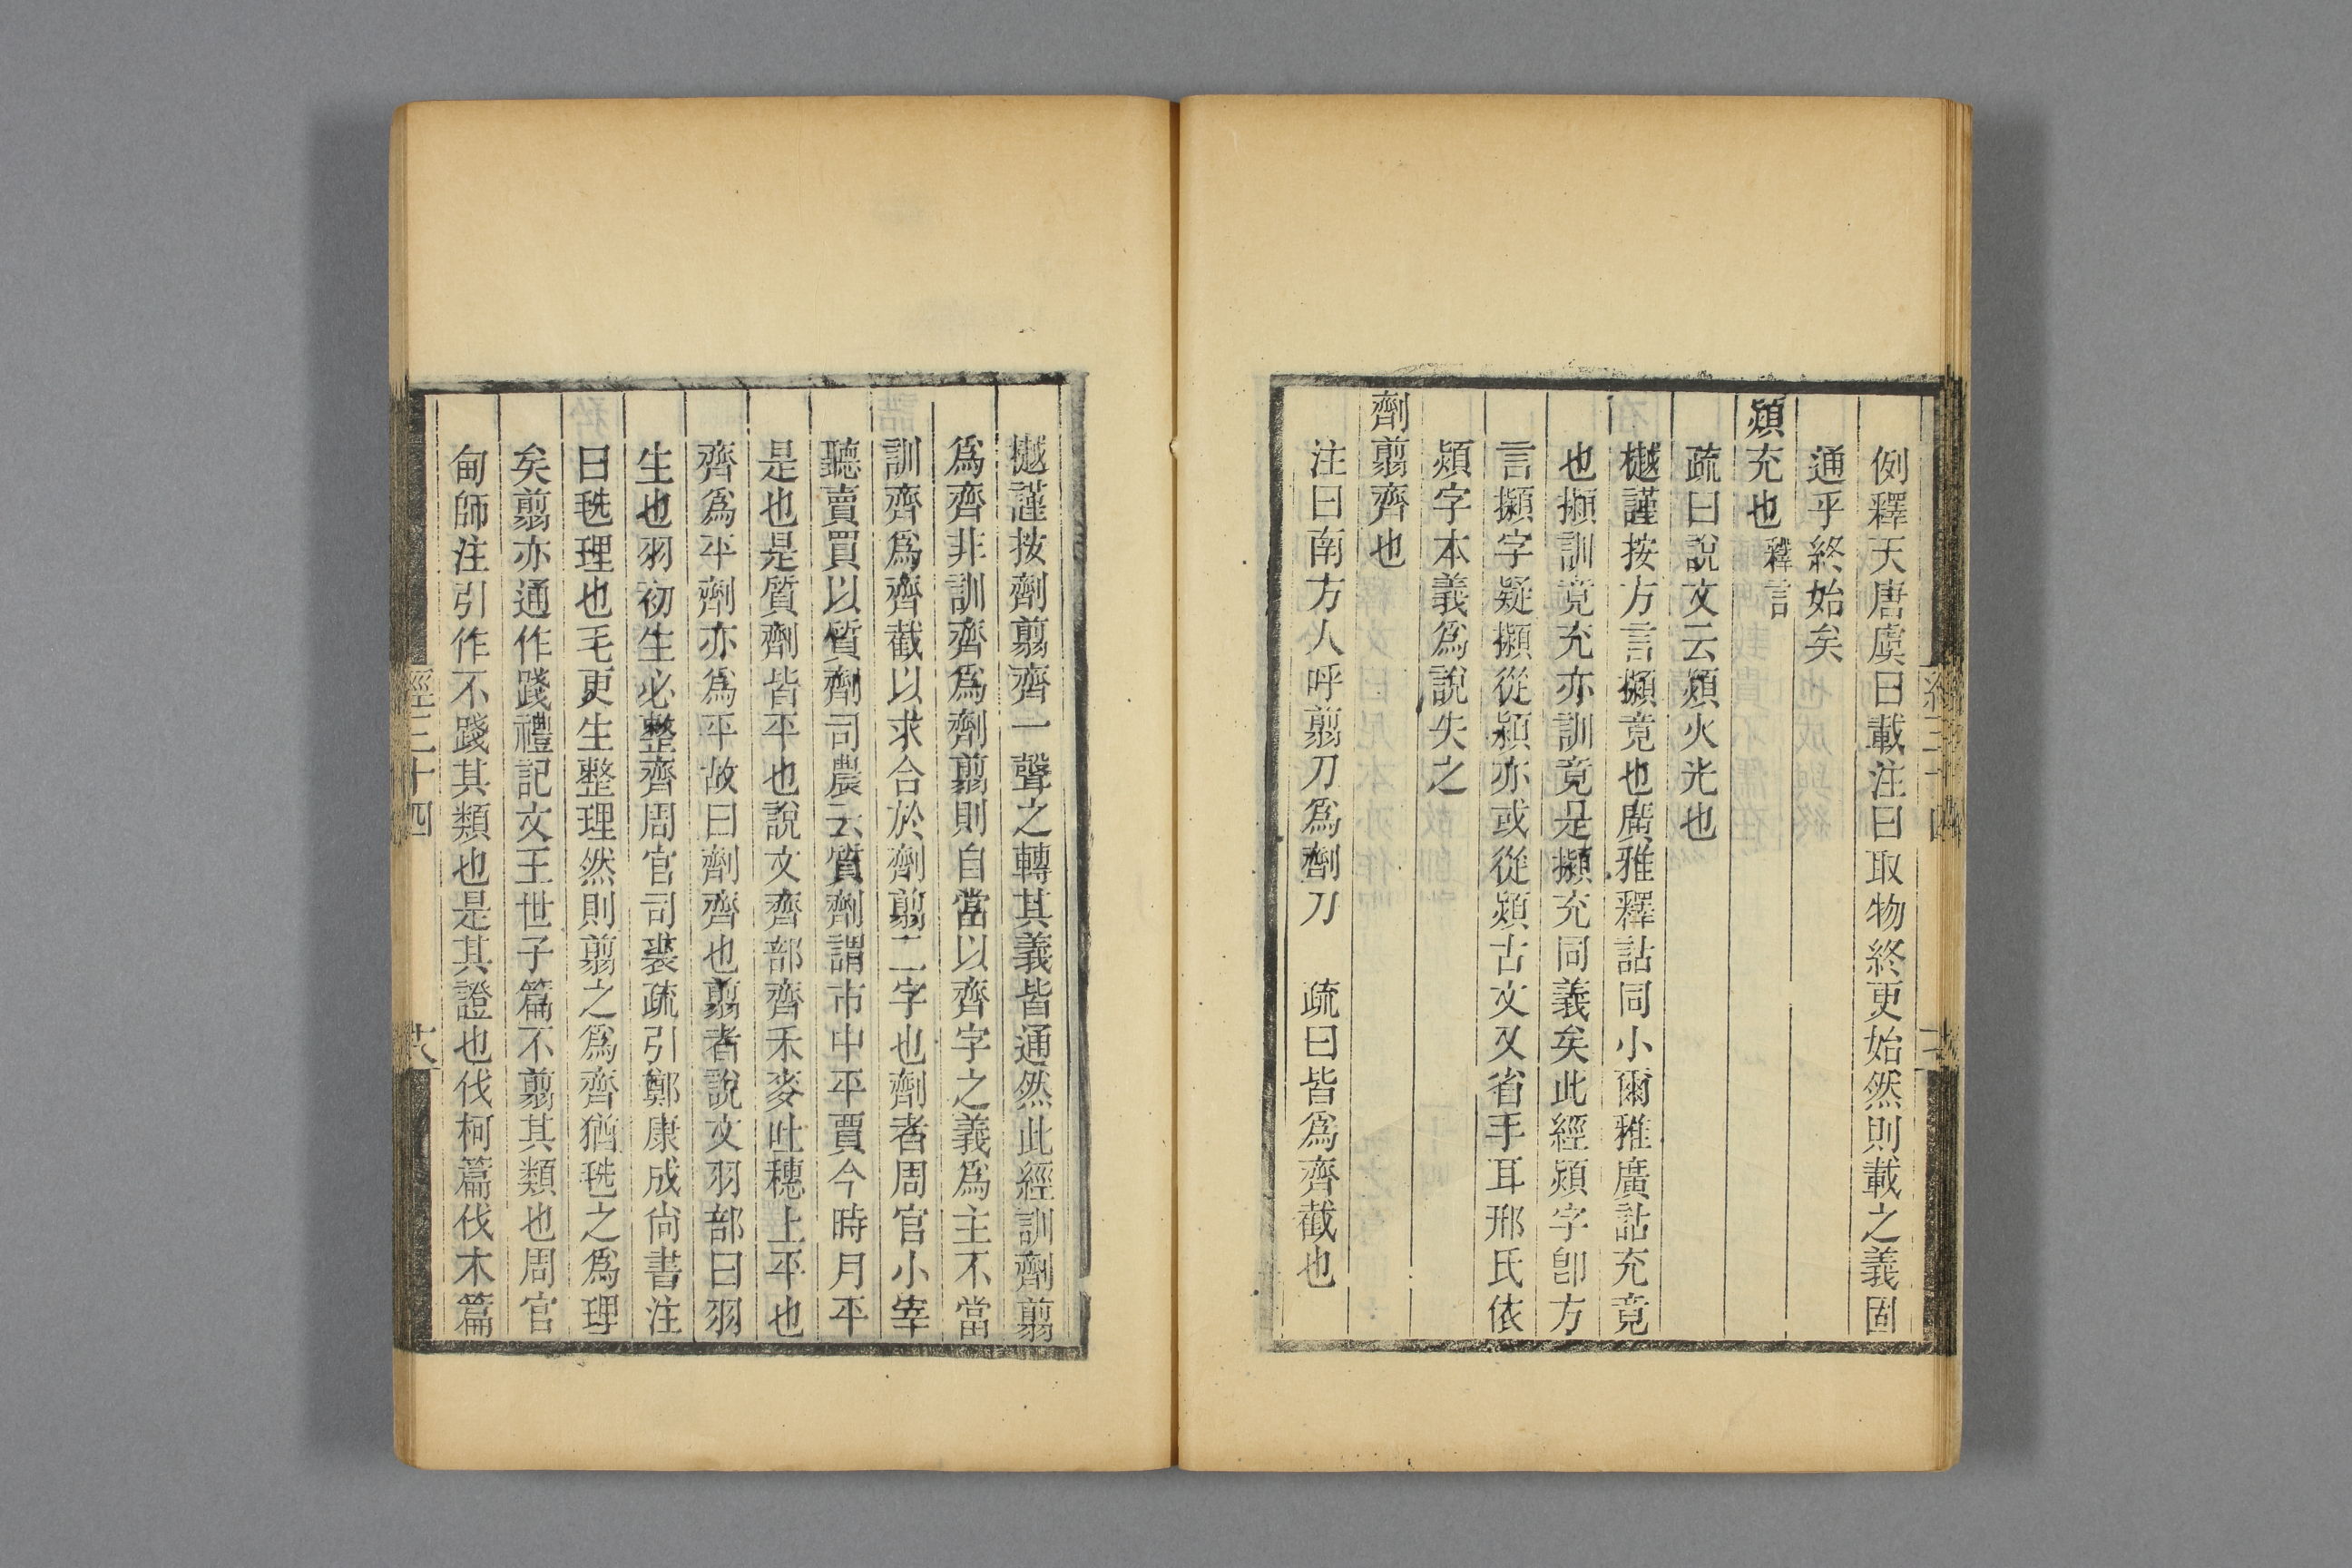 例釋天唐虞曰載注曰取物終更始然則載之義固
通乎終始矣
熲充也釋言
疏曰說文云熲火光也
樾謹按方言攧竟也廣雅釋詁同小爾雅廣詁充竟
也攧訓竟充亦訓竟是攧充同義矣此經熲字卽方
言攧字疑攧從熲亦或從熲古文又省手耳邢氏依
熲字本義爲說失之
劑翦齊也
注曰南方人呼翦刀爲劑刀　疏曰皆爲齊截也
樾謹按劑翦齊一聲之轉其義皆通然此經訓劑翦
爲齊非訓齊爲劑翦則自當以齊字之義爲主不當
訓齊爲齊截以求合於劑翦二字也劑者周官小宰
聽賣買以質劑司農云質劑謂市中平賈今時月平
是也是質劑皆平也說文齊部齊禾麥吐穗上平也
齊爲平劑亦爲平故曰劑齊也翦者說文羽部曰羽
生也羽初生必整齊周官司裘疏引鄭康成尙書注
曰毨理也毛更生整理然則翦之爲齊猶毨之爲理
矣翦亦通作踐禮記文王世子篇不翦其類也周官
甸師注引作不踐其類也是其證也伐柯篇伐木篇
經三十四